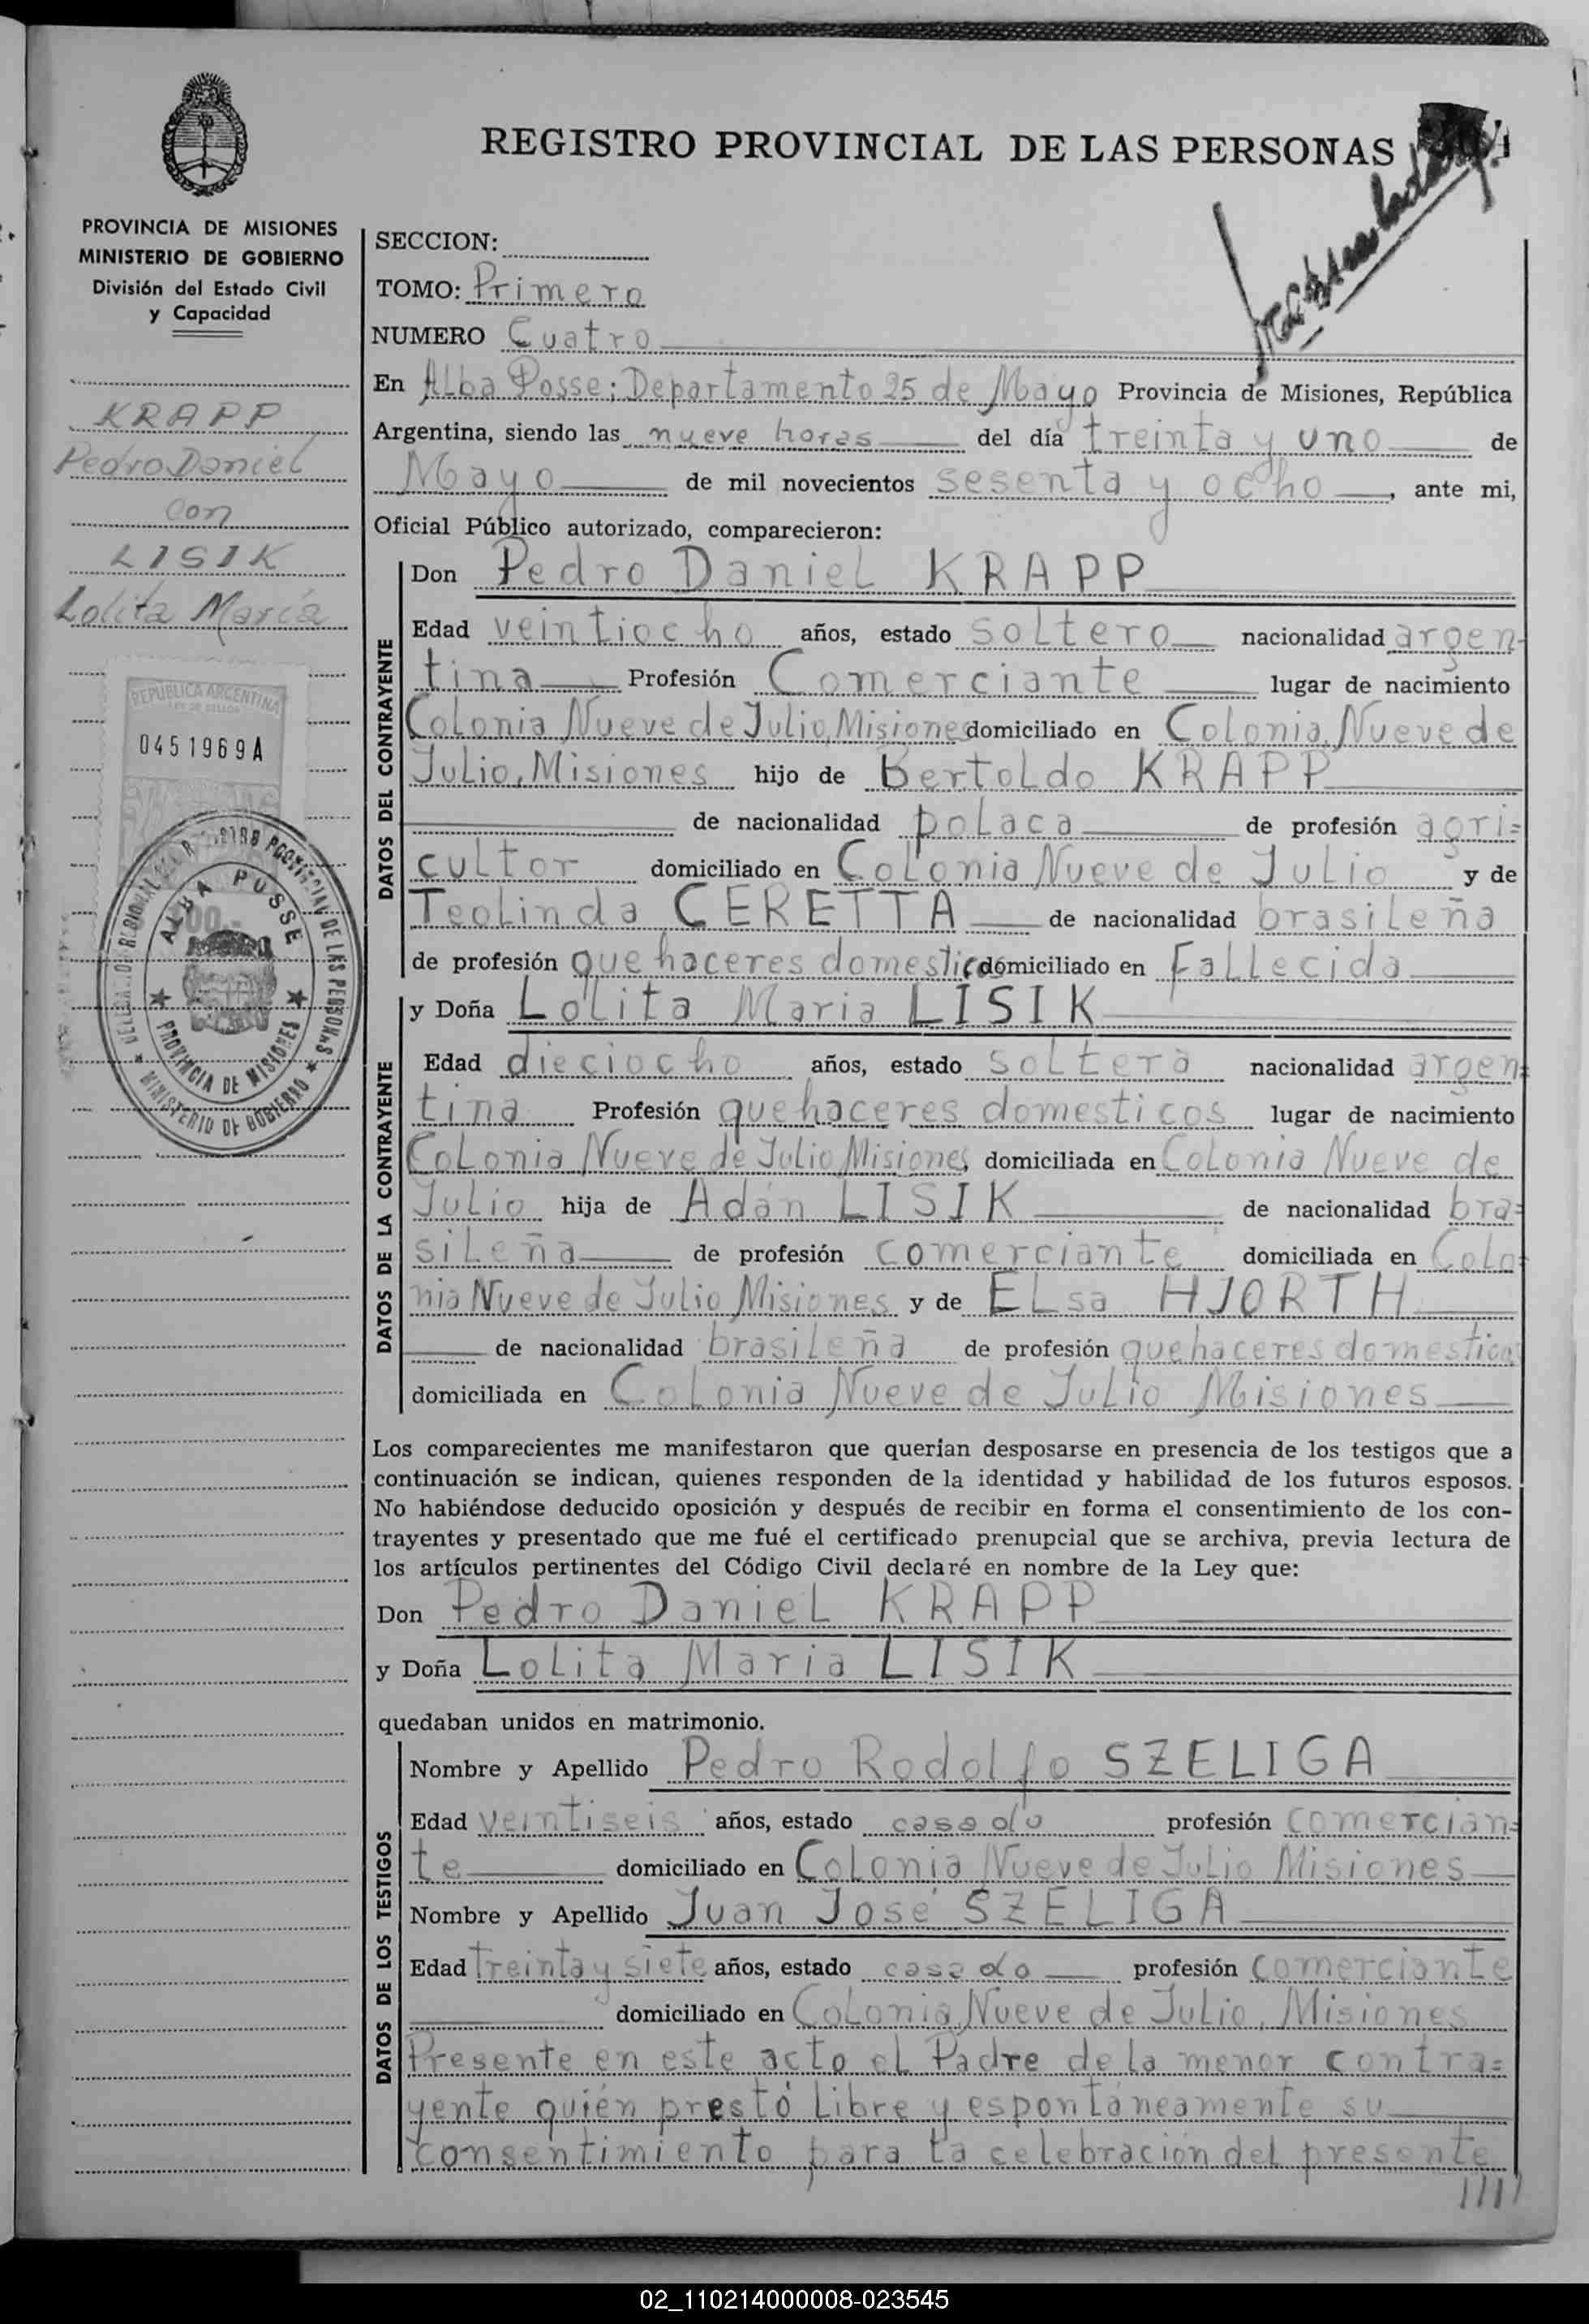 REGISTRO PROVINCIAL DE LAS PERSONAS
PROVINCIA DE MISIONES
MINISTERIO DE GOBIERNO
División del Estado Civil
y Capacidad
KRAPP
Pedro Daniel
con
LISIK
Lolita María
REPUBLICA ARGENTINA
LEY DE SELLOS
0451969A
ALBA POSSE
PROVINCIA DE MISIONES
MINISTERIO DE GOBIERNO
PROVINCIAL DE LAS PERSONAS
SECCION:
TOMO: Primero
NUMERO Cuatro
En Alba Posse; Departamento 25 de Mayo Provincia de Misiones, República
Argentina, siendo las nueve horas del día treinta y uno de
Mayo de mil novecientos sesenta y ocho, ante mi,
Oficial Público autorizado, comparecieron:
DATOS DEL CONTRAYENTE
Don Pedro Daniel KRAPP
Edad veintiocho años, estado soltero nacionalidad argen-
tina Profesión Comerciante lugar de nacimiento
Colonia Nueve de Julio, Misiones domiciliado en Colonia, Nueve de
Julio, Misiones hijo de Bertoldo KRAPP
de nacionalidad polaca de profesión agri=
cultor domiciliado en Colonia Nueve de Julio y de
Teolinda CERETTA de nacionalidad brasileña
de profesión quehaceres domesticos domiciliado en Fallecida
DATOS DE LA CONTRAYENTE
y Doña Lolita Maria LISIK
Edad dieciocho años, estado soltera nacionalidad argen=
tina Profesión quehaceres domesticos lugar de nacimiento
Colonia Nueve de Julio Misiones, domiciliada en Colonia Nueve de
Julio hija de Adán LISIK de nacionalidad bra=
sileña de profesión comerciante domiciliada en Colo=
nia Nueve de Julio Misiones y de ELsa HJORTH
de nacionalidad brasileña de profesión quehaceres domesticos
domiciliada en Colonia Nueve de Julio Misiones
Los comparecientes me manifestaron que querían desposarse en presencia de los testigos que a
continuación se indican, quienes responden de la identidad y habilidad de los futuros esposos.
No habiéndose deducido oposición y después de recibir en forma el consentimiento de los con-
trayentes y presentado que me fué el certificado prenupcial que se archiva, previa lectura de
los artículos pertinentes del Código Civil declaré en nombre de la Ley que:
Don Pedro Daniel KRAPP
y Doña Lolita Maria LISIK
quedaban unidos en matrimonio.
DATOS DE LOS TESTIGOS
Nombre y Apellido Pedro Rodolfo SZELIGA
Edad veintiseis años, estado casado profesión comercian=
te domiciliado en Colonia Nueve de Julio Misiones
Nombre y Apellido Juan José SZELIGA
Edad treinta y siete años, estado casado profesión comerciante
domiciliado en Colonia, Nueve de Julio, Misiones
Presente en este acto el Padre de la menor contra=
yente quién prestó Libre y espontáneamente su
consentimiento para la celebración del presente
////
02_110214000008-023545